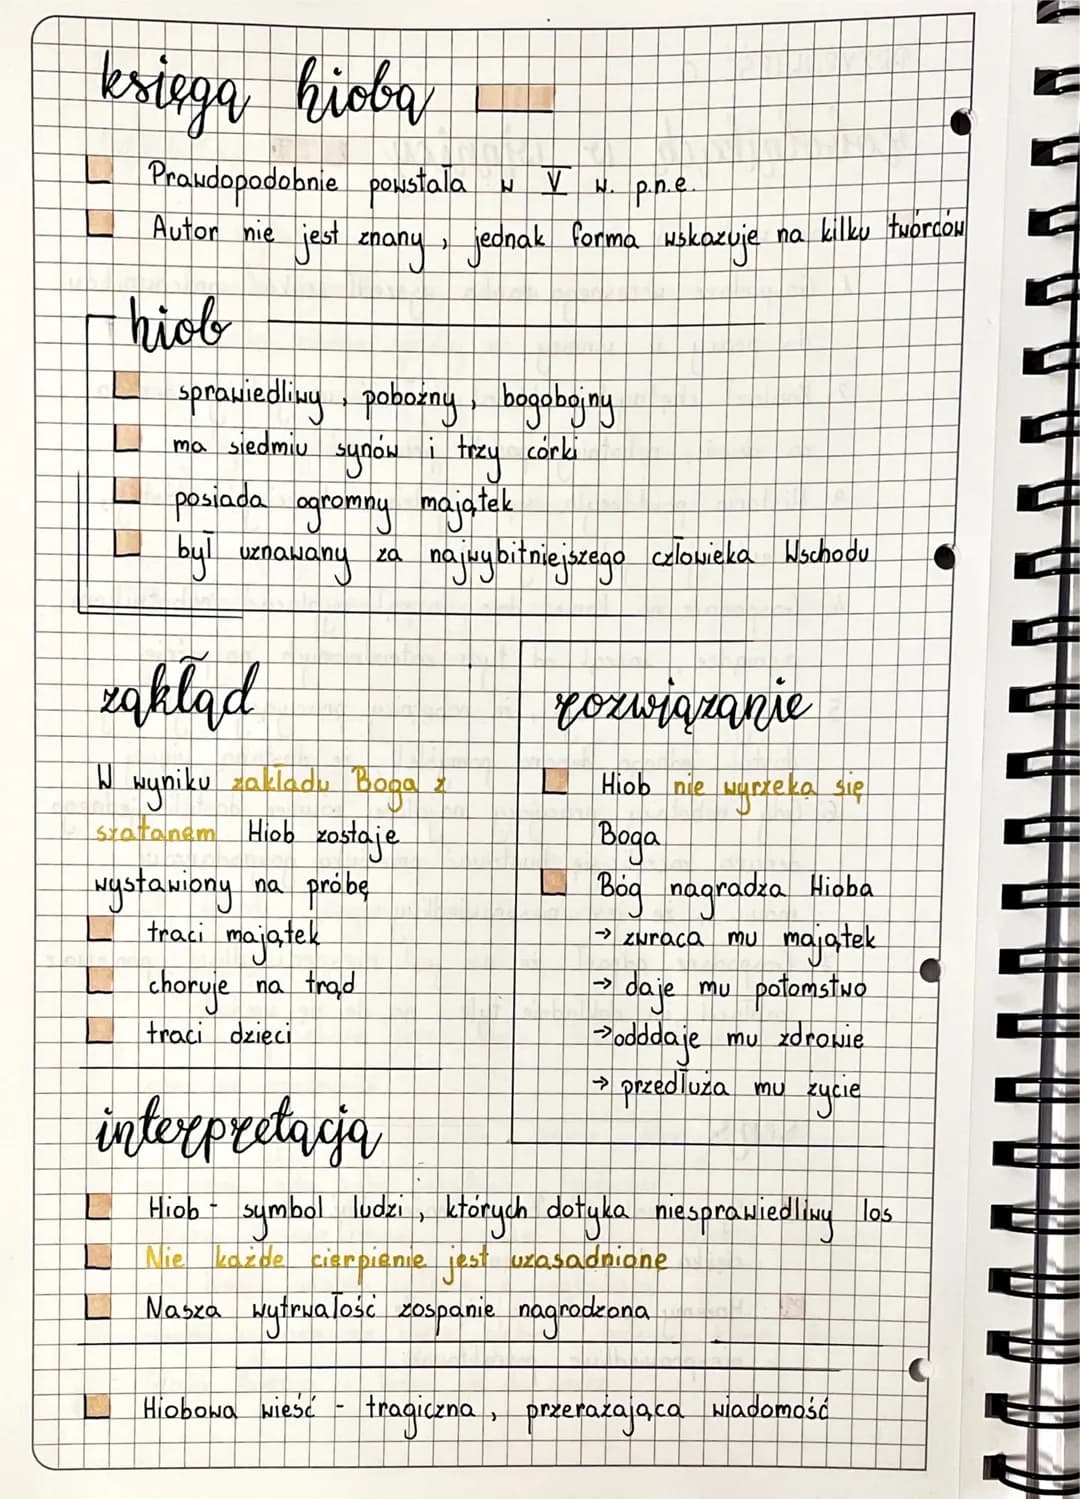 księga hioba
Prawdopodobnie powstała w V w. p.n.e.
Autor nie jest znany, jednak forma wskazuje na kilku twórców
hiob
sprawiedliwy, pobożny, bogobojny
ma siedmiu synów i trzy córki
posiada ogromny majątek
był uznawany za najwybitniejszego człowieka Wschodu
zakład
W wyniku zakładu Boga z
szatanem Hiob zostaje
wystawiony na próbę
traci majątek
choruje na trąd
traci dzieci
rozwiązanie
Hiob nie wyrzeka się
Boga
Bóg nagradza Hioba
→ zwraca mu majątek
→ daje mu potomstwo
→ odddaje mu zdrowie
→ przedłuża mu życie
interpretacja
Hiob - symbol ludzi, których dotyka niesprawiedliwy los
Nie każde cierpienie jest uzasadnione
Nasza wytrwałość zospanie nagrodzona
Hiobowa wieść - tragiczna, przerażająca wiadomość